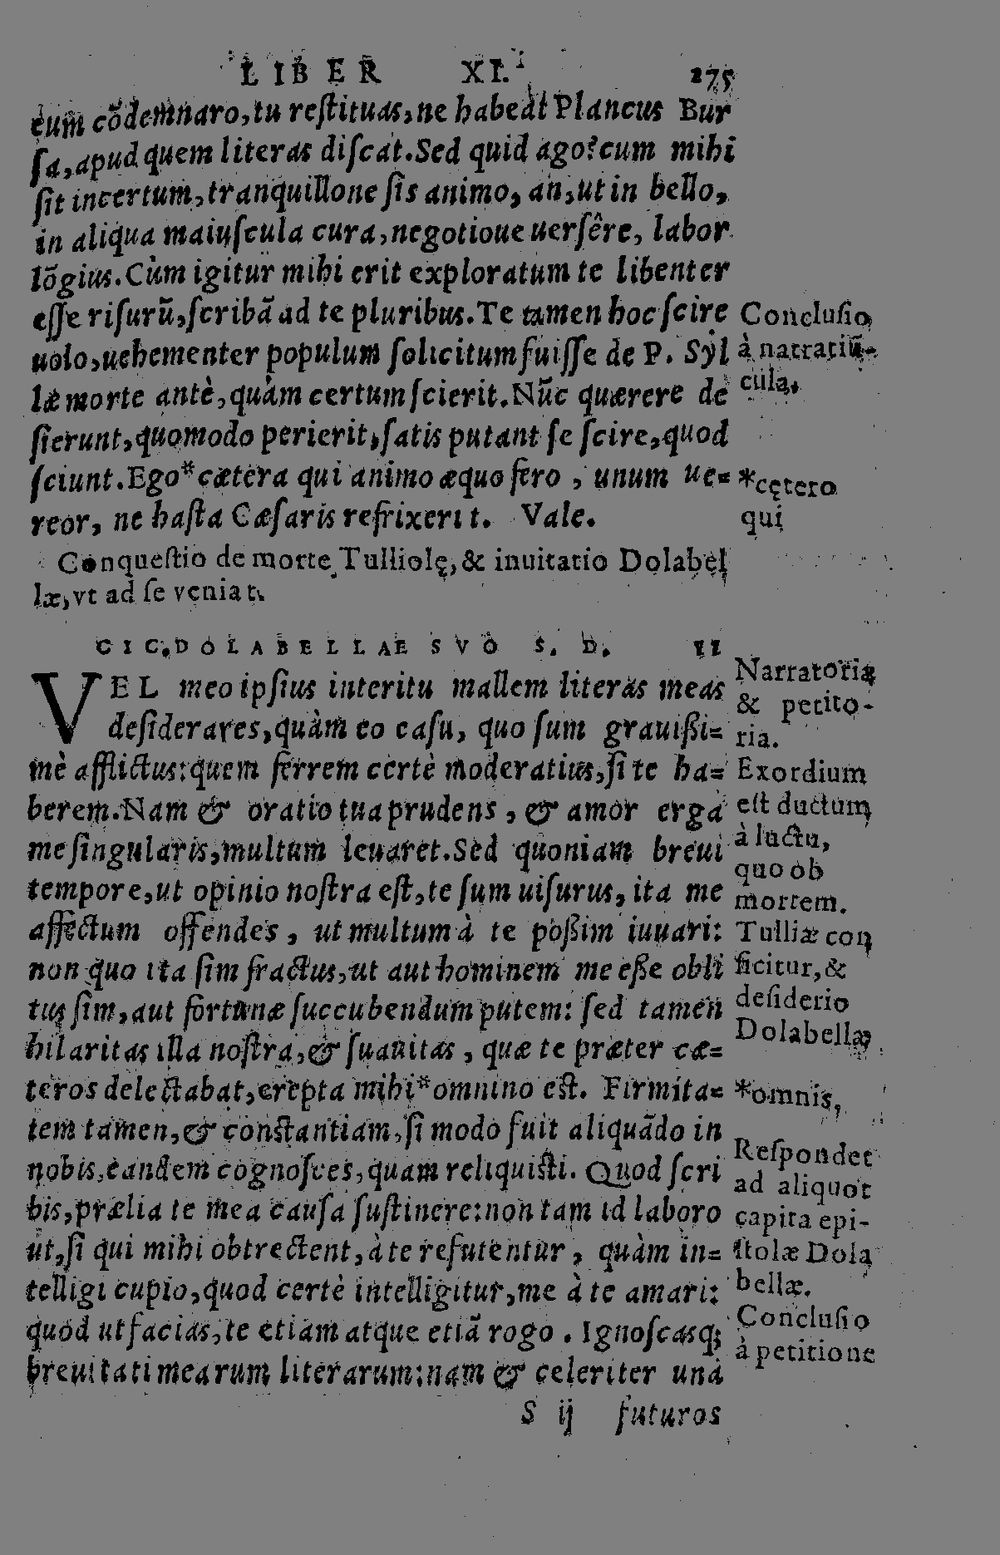 LIBER XI. 275
eum cõdemnaro, tu reſtituas, ne habeat Plancus Bur
ſa, apud quem literas diſcat. Sed quid ago? cum mihi
ſit incertum, tranquillone ſis animo, an, ut in bello,
in aliqua maiuſcula cura, negotioue uerſêre, labor
lõgius. Cùm igitur mihi erit exploratum te libenter
eſſe riſurũ, ſcribã ad te pluribus. Te tamen hoc ſcire
uolo, uehementer populum ſolicitum fuiſſe de P. Syl
læ morte antè, quàm certum ſcierit. Nũc quærere de
ſierunt, quomodo perierit, ſatis putant ſe ſcire, quod
ſciunt. Ego * cætera qui animo æquo fero, unum ue=
reor, ne haſta Cæſaris refrixerit. Vale.
Concluſio
à narratiũ-
cula.
*cętero
qui
Conqueſtio de morte Tulliolę, & inuitatio Dolabel
læ, vt ad ſe veniat.
CIC. DOLABELLAE SVO S. D. II
VEL meo ipſius interitu mallem literas meas
deſiderares, quàm eo caſu, quo ſum grauißi=
mè afflictus: quem ferrem certè moderatius, ſi te ha=
berem. Nam & oratio tua prudens, & amor erga
me ſingularis, multum leuaret. Sed quoniam breui
tempore, ut opinio noſtra eſt, te ſum uiſurus, ita me
affectum offendes, ut multum à te poßim iuuari:
non quo ita ſim fractus, ut aut hominem me eße obli
tus ſim, aut fortunæ ſuccubendum putem: ſed tamen
hilaritas illa noſtra, & ſuauitas, quæ te præter cæ=
teros delectabat, erepta mihi * omnino eſt. Firmita=
tem tamen, & conſtantiam, ſi modo fuit aliquãdo in
nobis, eandem cognoſces, quam reliquiſti. Quod ſcri
bis, prælia te mea cauſa ſuſtinere: non tam id laboro
ut, ſi qui mihi obtrectent, à te refutentur, quàm in=
telligi cupio, quod certè intelligitur, me à te amari:
quod ut facias, te etiam atque etiã rogo. Ignoſcasq;
breuitati mearum literarum: nam & celeriter unà
S ij futuros
Narratoria
& petito-
ria.
Exordium
eſt ductum
à luctu,
quo ob
mortem
Tulliæ con
ficitur, &
deſiderio
Dolabellæ
*omnis,
Reſpondet
ad aliquot
capita epi-
ſtolæ Dola
bellæ.
Concluſio
à petitione